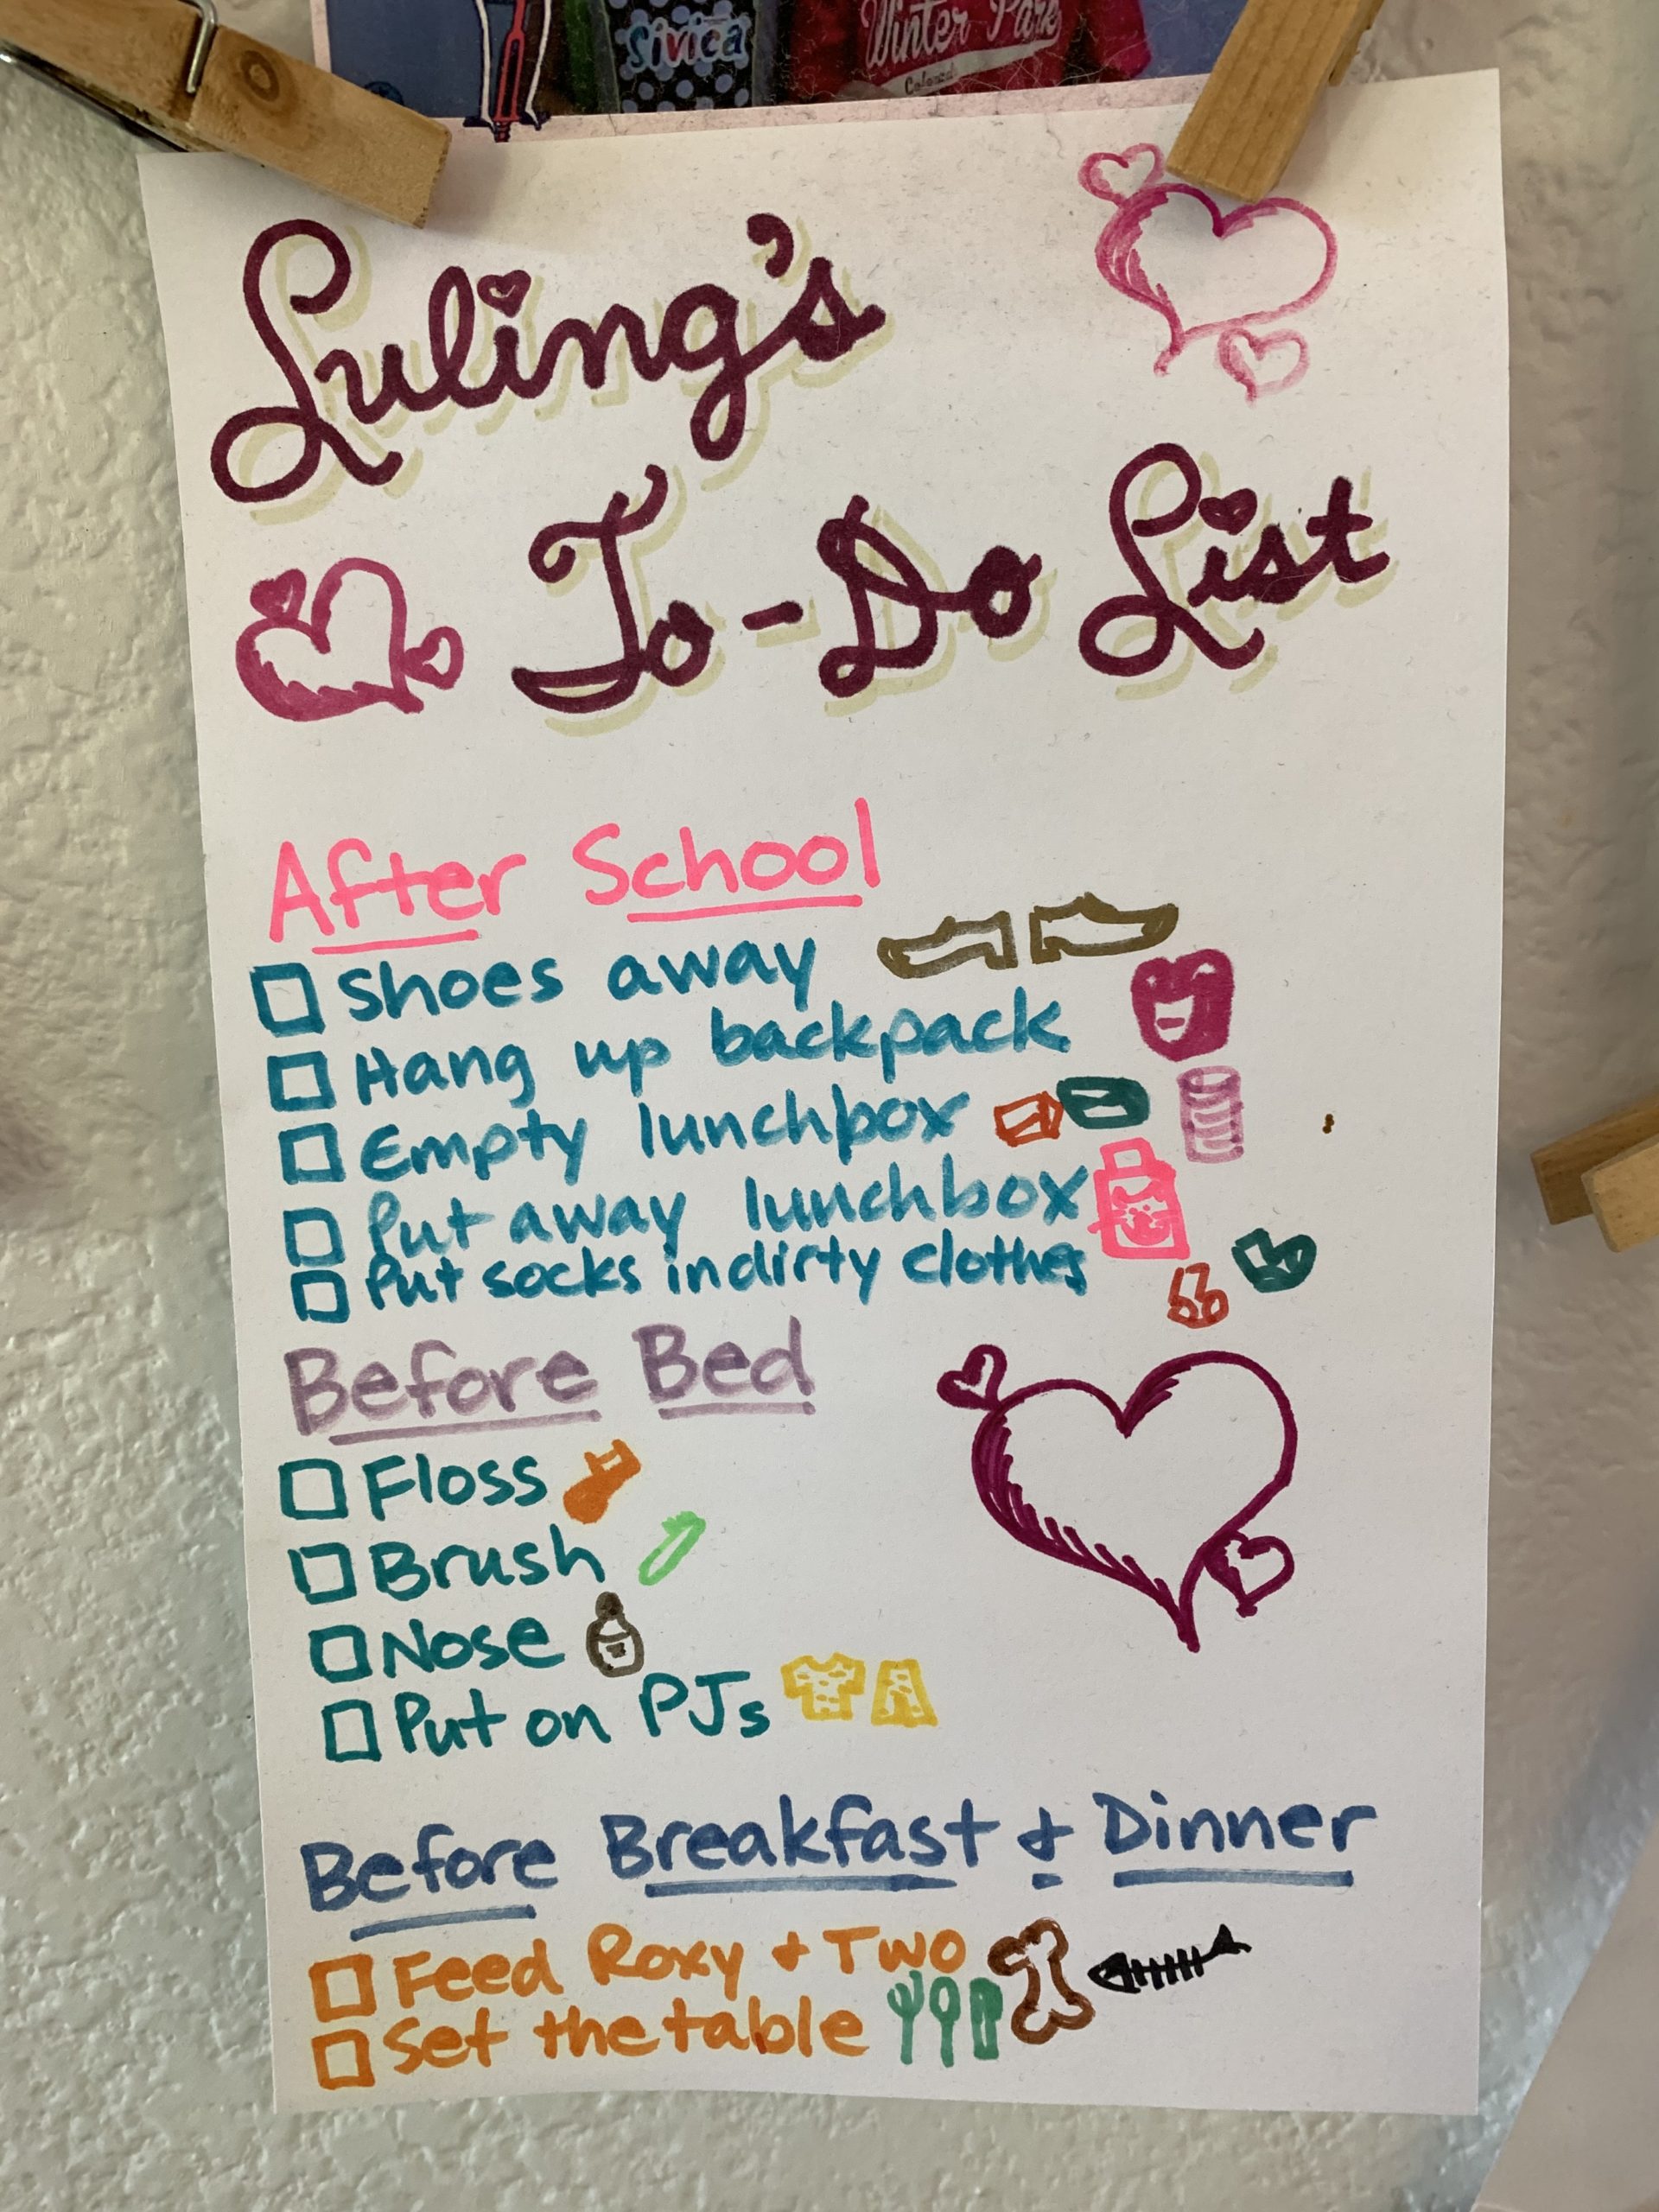 Sivica
Winter Park
Colorado
Luling's
To-Do List
After School
Shoes away
Hang up backpack
Empty lunchbox
Put away lunchbox
Put socks in dirty clothes
Before Bed
Floss
Brush
Nose
Put on PJs
Before Breakfast & Dinner
Feed Roxy + Two
Set the table